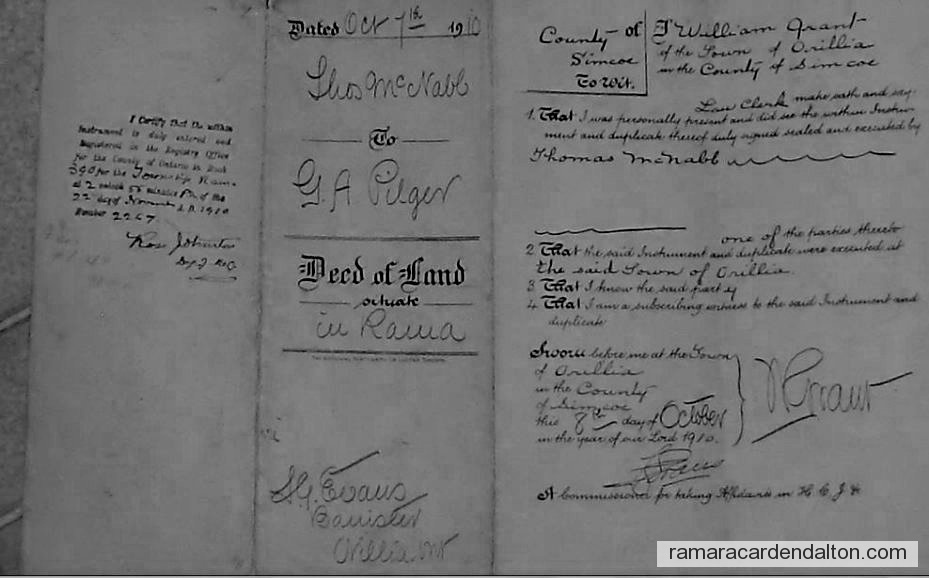 I Certify that the within
Instrument is duly entered and
Registered in the Registry Office
for the County of Ontario in Book
for the Township Rama
at 2 o'clock 55 minutes P.M. of the
22 day of November A.D. 1910
Number 2267
Ross Johnston
Dep'y Reg.
Dated Oct 7th 1910
Thos McNabb
To
G. A. Pilger
Deed of Land
situate
in Rama
A.G. Evans
Barrister
Orillia Ont
County of
Simcoe
To Wit.
I William Grant
of the Town of Orillia
in the County of Simcoe
Law Clerk make oath and say
1. That I was personally present and did see the within Instru-
ment and duplicate thereof duly signed sealed and executed by
Thomas McNabb
one of the parties thereto
2 That the said Instrument and duplicate were executed at
the said Town of Orillia.
3 That I know the said party
4 That I am a subscribing witness to the said Instrument and
duplicate
Sworn before me at the Town
of Orillia
in the County
of Simcoe
this 8th day of October
in the year of our Lord 1910.
W Grant
A Commissioner for taking Affidavits in H. C. J. &c
ramaracardendalton.com